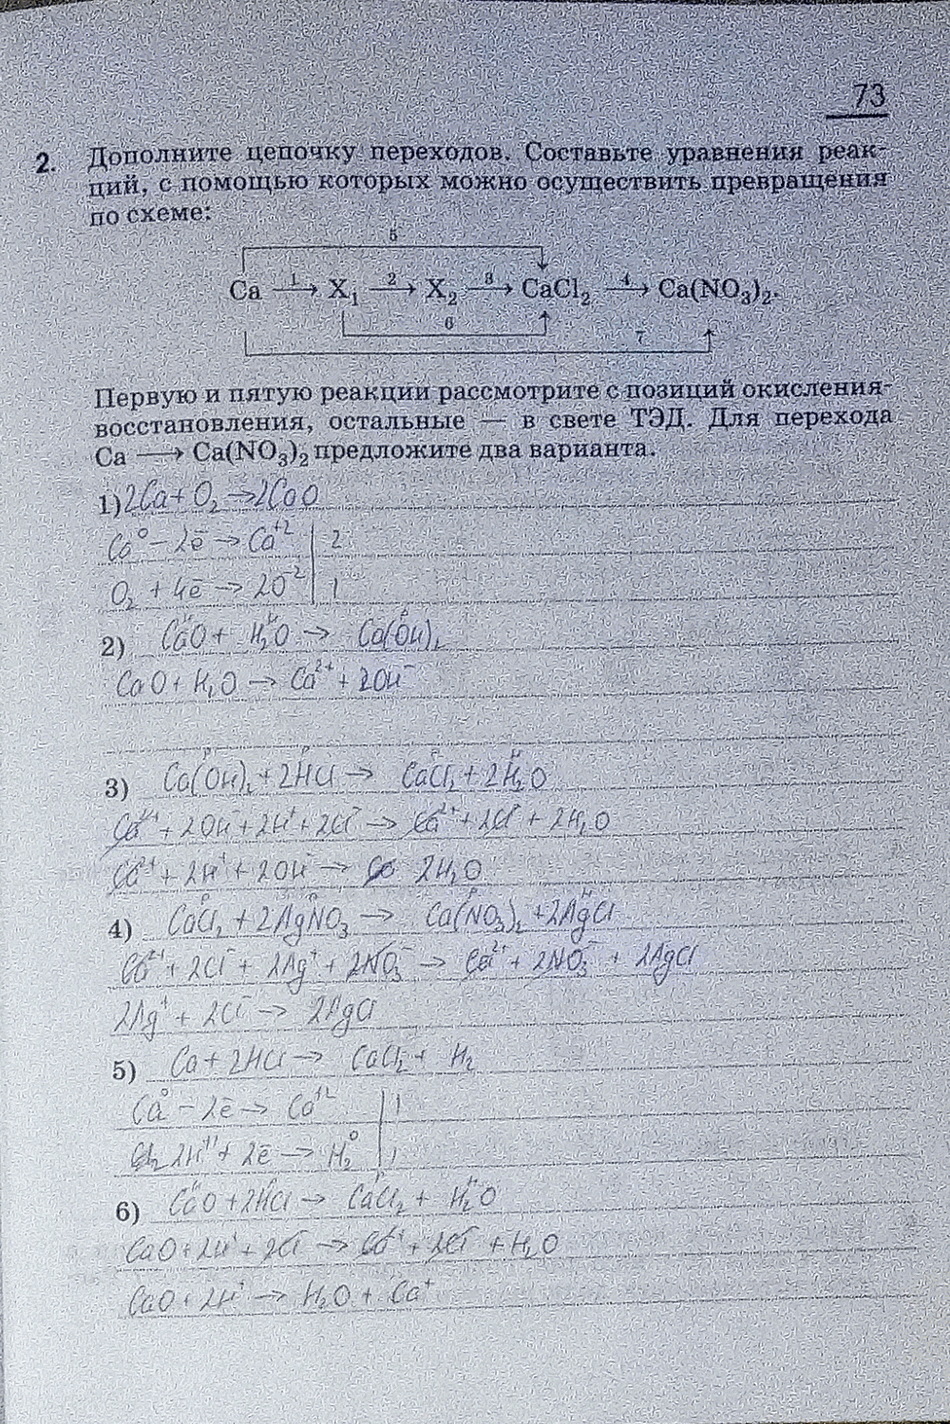 73
2. Дополните цепочку переходов. Составьте уравнения реак-
ций, с помощью которых можно осуществить превращения
по схеме:
5
Ca —1→ X₁ —2→ X₂ —3→ CaCl₂ —4→ Ca(NO₃)₂.
6
7
Первую и пятую реакции рассмотрите с позиций окисления-
восстановления, остальные — в свете ТЭД. Для перехода
Ca ⟶ Ca(NO₃)₂ предложите два варианта.
1) 2Ca + O₂ → 2CaO
Ca⁰ − 2ē → Ca⁺² | 2
O₂ + 4ē → 2O⁻² | 1
2) CaO + H₂O → Ca(OH)₂
CaO + H₂O → Ca²⁺ + 2OH⁻
3) Ca(OH)₂ + 2HCl → CaCl₂ + 2H₂O
Ca²⁺ + 2OH⁻ + 2H⁺ + 2Cl⁻ → Ca²⁺ + 2Cl⁻ + 2H₂O
2H⁺ + 2OH⁻ → 2H₂O
4) CaCl₂ + 2AgNO₃ → Ca(NO₃)₂ + 2AgCl
Ca²⁺ + 2Cl⁻ + 2Ag⁺ + 2NO₃⁻ → Ca²⁺ + 2NO₃⁻ + 2AgCl
2Ag⁺ + 2Cl⁻ → 2AgCl
5) Ca + 2HCl → CaCl₂ + H₂
Ca⁰ − 2ē → Ca⁺² | 1
2H⁺¹ + 2ē → H₂⁰ | 1
6) CaO + 2HCl → CaCl₂ + H₂O
CaO + 2H⁺ + 2Cl⁻ → Ca²⁺ + 2Cl⁻ + H₂O
CaO + 2H⁺ → H₂O + Ca⁺